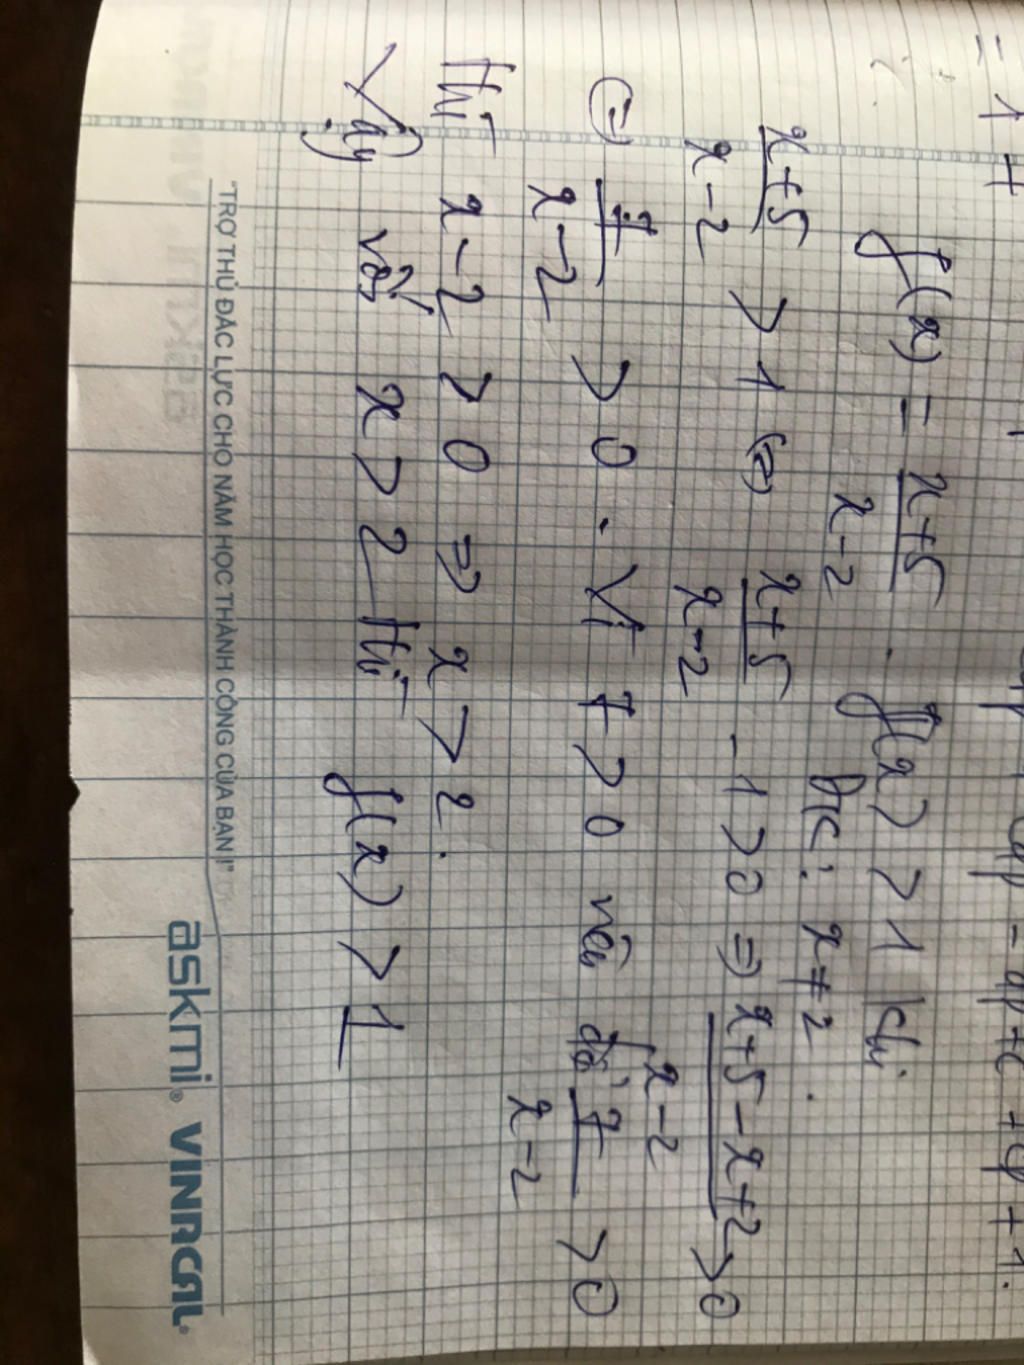 = 1 +
f(x) = x+5/x-2 . f(x) > 1 khi
ĐK: x ≠ 2 .
x+5/x-2 > 1 (=) x+5/x-2 - 1 > 0 => x+5-x+2/x-2 > 0
(=) 7/x-2 > 0 . Vì 7 > 0 nên để 7/x-2 > 0
thì x-2 > 0 => x > 2 .
Vậy với x > 2 thì f(x) > 1
"TRỢ THỦ ĐẮC LỰC CHO NĂM HỌC THÀNH CÔNG CỦA BẠN !"
askmi® VINACAL®